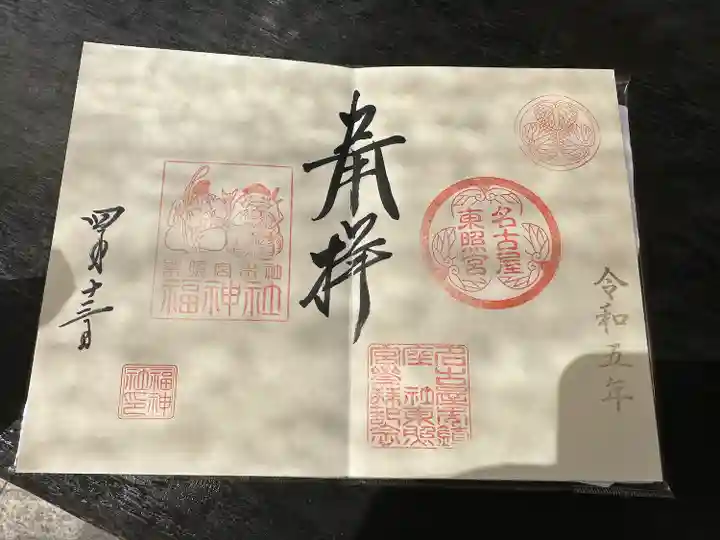 令和五年
名古屋
東照宮
奉拝
東照宮末社
福神社
福神
社印
四月十三日